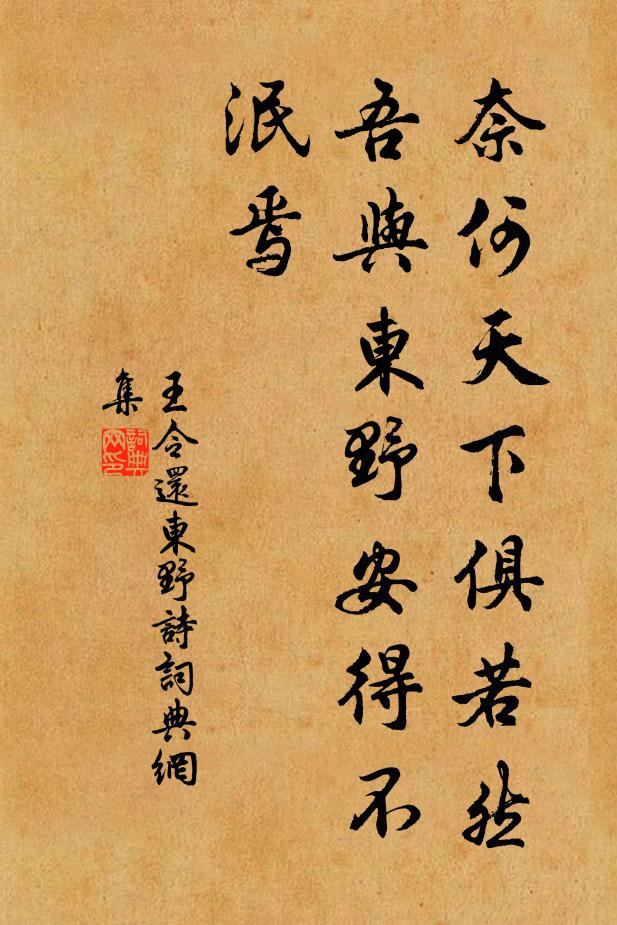 奈何天下俱若然
吾與東野安得不
泯焉
王令還東野詩詞典網
集
詞典网印